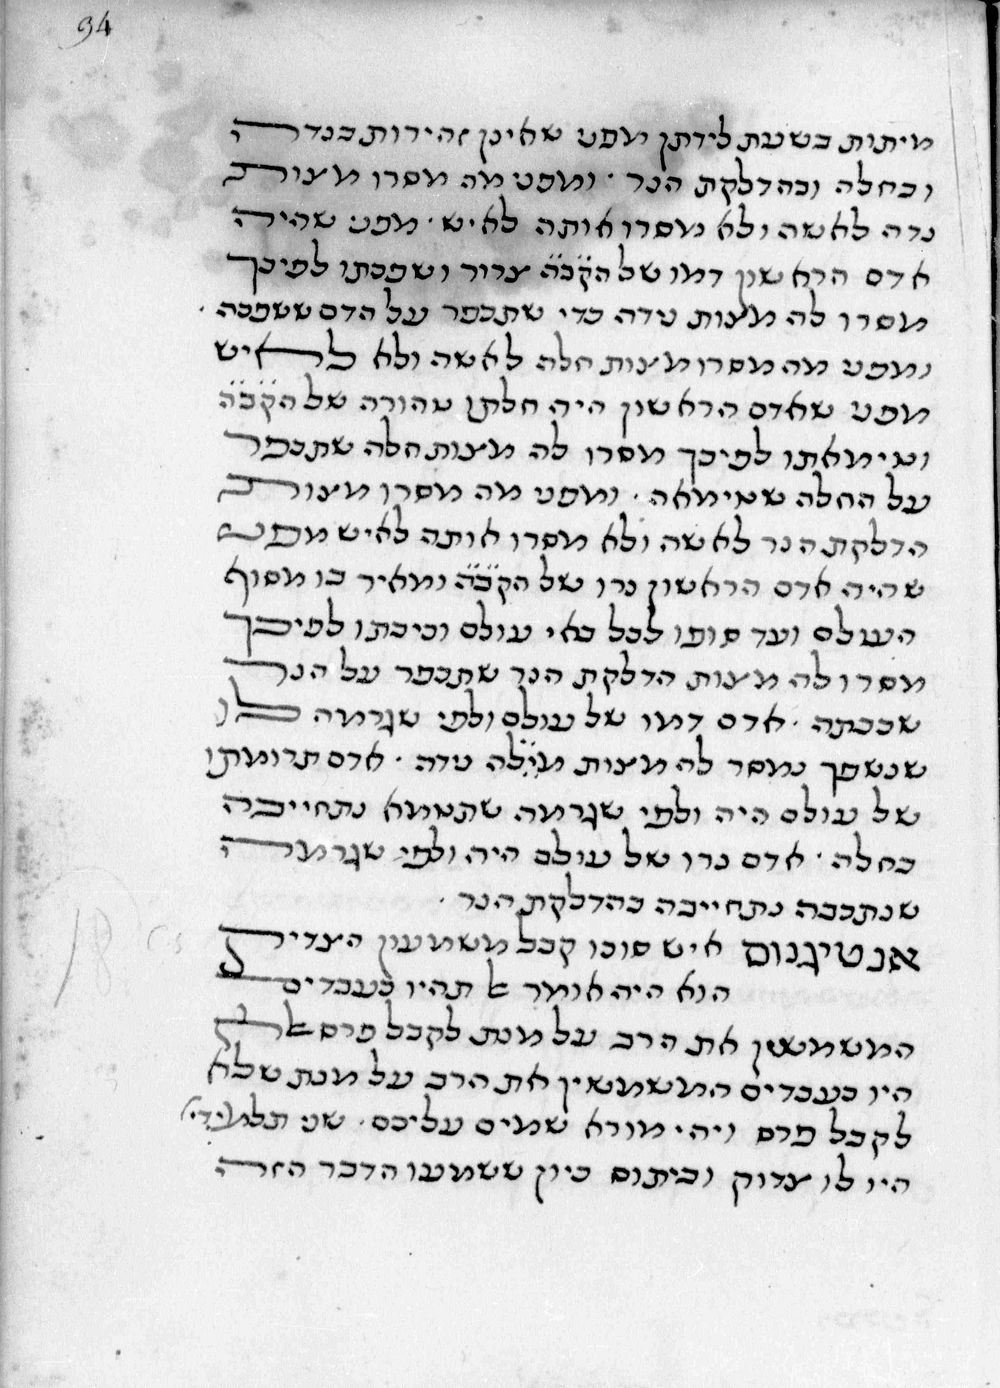 94
מיתות בשעת לידתן מפני שאינן זהירות בנדה
ובחלה ובהדלקת הנר · ומפני מה מסרו מצות
נדה לאשה ולא מסרו אותה לאיש · מפני שהיה
אדם הראשון דמו של הקב״ה צרור ושפכתו לפיכך
מסרו לה מצות נידה כדי שתכפר על הדם ששפכה ·
ומפני מה מסרו מצות חלה לאשה ולא לאיש
מפני שאדם הראשון היה חלתו טהורה של הקב״ה
וטימאתו לפיכך מסרו לה מצות חלה שתכפר
על החלה שטימאה · ומפני מה מסרו מצות
הדלקת הנר לאשה ולא מסרו אותה לאיש מפני
שהיה אדם הראשון נרו של הקב״ה ומאיר בו מסוף
העולם ועד סופו לכל באי עולם וכיבתו לפיכך
מסרו לה מצות הדלקת הנר שתכפר על הנר
שכבתה · אדם דמו של עולם ולפי שגרמה לו
שנשפך נמסר לה מצות נידה · אדם תרומתו
של עולם היה ולפי שגרמה שתטמא נתחייבה
בחלה · אדם נרו של עולם היה ולפי שגרמה
שנתכבה נתחייבה בהדלקת הנר ·
אנטיגנוס איש סוכו קבל משמעון הצדיק
הוא היה אומר אל תהיו כעבדים
המשמשין את הרב על מנת לקבל פרס אלא
היו כעבדים המשמשין את הרב על מנת שלא
לקבל פרס ויהי מורא שמים עליכם · שני תלמידי׳
היו לו צדוק וביתוס כיון ששמעו הדבר הזה